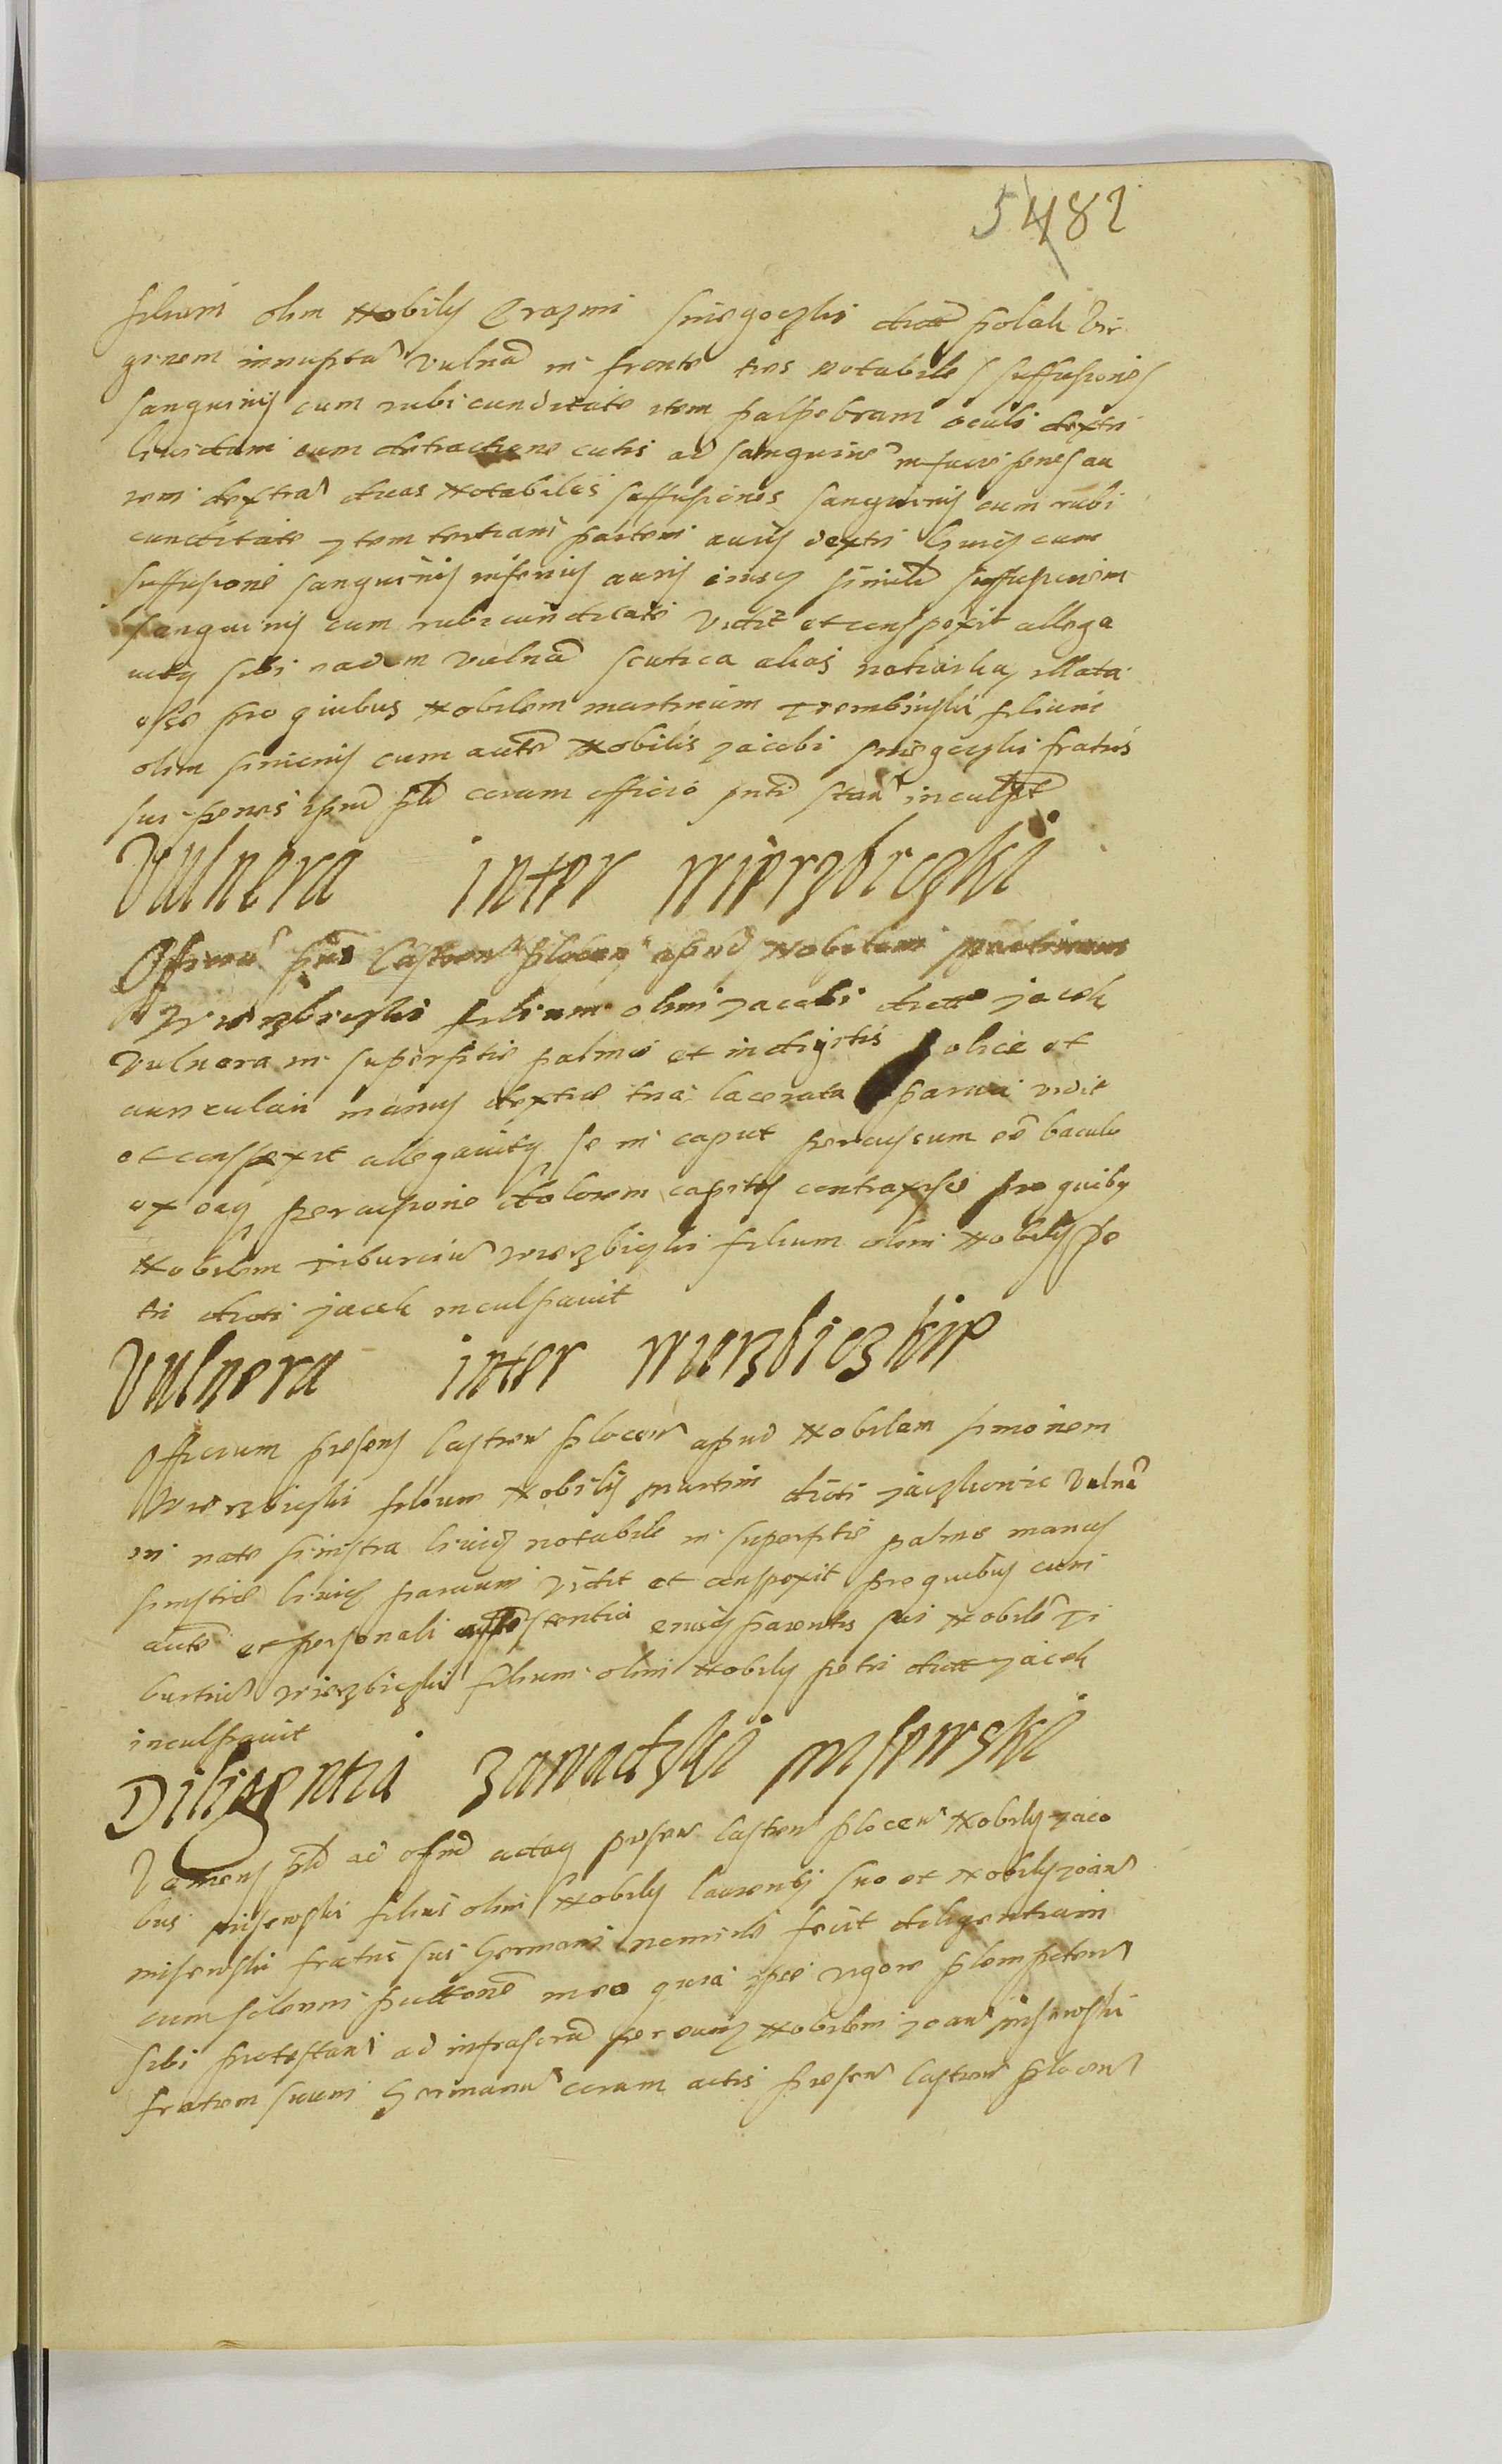 5482
filiam olim Nobilis Erazmi Sniegoczki dicti polak vir
ginem innuptam vulnera in fronte tres notabiles suffusiones
sanguinis cum rubicunditate item palpebram oculi dextri
lividam cum detractione cutis ad sanguinem in facie penes au
rem dextram duas Notabiles suffusiones sanguinis cum rubi
cunditate Item tertiam partem auris dextri livid cum
suffusione sanguinis inferius auris eiusq simile suffusionem
sanguinis cum rubicunditate vidit et conspexit allega
vitq sibi eadem vulnera scutica alias illata
esse pro quibus Nobilem martinum Trembinski filium
olim cum aute Nobilis Jacobi Sniegoczki fratris
sui penes ipm coram officio stan inculpat
Vulnera inter Wierzbiczki
Officium Castren plocen apud Nobilem
Wierzbiczki filium olim Jacobi dicti Jacek
vulnera in superficie palme et in digitis police et
auriculari manus dextre tria lacerata parva vidit
et conspexit allegavitq se in caput percussum ee baculo
ex eaq percussione dolorem capitis contraxisse pro quibq
Nobilem Tiburcium Wierzbiczki filium olim Nobilis pe
tri dicti Jacek inculpavit
Vulnera inter Wierzbiczkie
Officium presens Castren plocen apud Nobilem simonem
Wierzbiczki filium Nobilis martini dicti Jaczkowic vulnera
in nate sinistra livid notabile in superficie palme manus
sinistre livid parvum vidit et conspexit pro quibus cum
aute et personali assistentia eiusq parentis sui Nobilem Ti
burtium Wierzbiczki filium olim Nobilis petri dicti Jacek
inculpavit
Diligentia Zawadzki misewski
Veniens ad actaq presen Castren plocen Nobilis Jaco
bus misewski filius olim Nobilis laurentij suo et Nobilis Joan
misewski fratris sui Germani nomine fecit diligentiam
cum solenni in eo quia ipse vigore
sibi protestan ad infrascrip per eumq Nobilem Joan misewski
fratrem suum Germanum coram actis presen Castren plocen